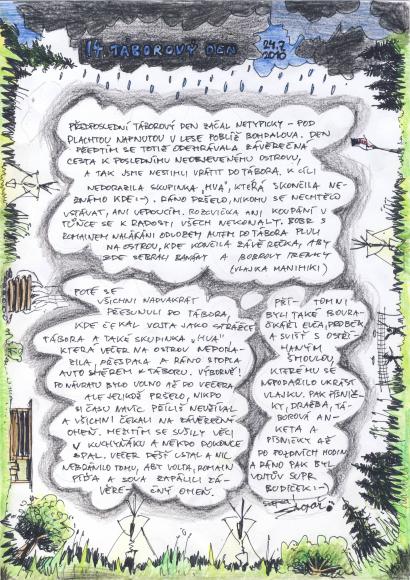 14 TÁBOROVÝ DEN
24.7.
2010
PŘEDPOSLEDNÍ TÁBOROVÝ DEN ZAČAL NETYPICKY - POD
PLACHTOU NAPNUTOU V LESE POBLÍŽ BOHDALOVA. DEN
PŘEDTÍM SE TOTIŽ ODEHRÁVALA ZÁVĚREČNÁ
CESTA K POSLEDNÍMU NEOBJEVENÉMU OSTROVU,
A TAK JSME NESTIHLI VRÁTIT DO TÁBORA. K CÍLI
NEDORAZILA SKUPINKA "HVA", KTERÁ SKONČILA NE-
ZNÁMO KDE :-). RÁNO PRŠELO, NIKOMU SE NECHTĚLO
VSTÁVAT, ANI VEDOUCÍM. ROZCVIČKA ANI KOUPÁNÍ V
TŮŇCE SE K RADOSTI VŠECH NEKONALY. BOBR S
ROMAINEM NALÁKÁNI ODVOZEM AUTEM DO TÁBORA PLULI
NA OSTROV, KDE KONČILA ZÁVĚREČKA, ABY
ZDE SEBRALI BANÁNY A BOBROVY TRENKY
(VLAJKA MANIHIKI)
POTÉ SE
VŠICHNI NADVAKRÁT
PŘESUNULI DO TÁBORA,
KDE ČEKAL VOJTA JAKO STRÁŽCE
TÁBORA A TAKÉ SKUPINKA "HVA"
KTERÁ VEČER NA OSTROV NEDORA-
ZILA, PŘESPALA A RÁNO STOPLA
AUTO SMĚREM K TÁBORU. VÝBORNĚ!
PO NÁVRATU BYLO VOLNO AŽ DO VEČERA,
ALE JELIKOŽ PRŠELO, NIKDO
SI ČASU NAVÍC PŘÍLIŠ NEUŽÍVAL
A VŠICHNI ČEKALI NA ZÁVĚREČNÝ
OHEŇ. MEZITÍM SE SUŠILY VĚCI
V KUCHYŇÁKU A NĚKDO DOKONCE
SPAL. VEČER DÉŠŤ USTAL A NIC
NEBRÁNILO TOMU, ABY VOJTA, ROMAIN
PÍĎA A SOVA ZAPÁLILI ZÁ-
VĚRE- ČNÝ OHEŇ.
PŘÍ- TOMNI
BYLI TAKÉ BOURA-
ČKÁŘI EUČA, PEDBĚK
A SVIŠŤ S OSTŘÍ-
HANÝM
ŠMOULOU,
KTERÉMU SE
NEPODAŘILO UKRÁST
VLAJKU. PAK PÍSNIČ-
KY, DRAŽBA, TÁ-
BOROVÁ AN-
KETA A
PÍSNIČKY AŽ
DO POZDNÍCH HODIN
A RÁNO PAK BYL
VOJTŮV SUPR
BUDÍČEK :-)